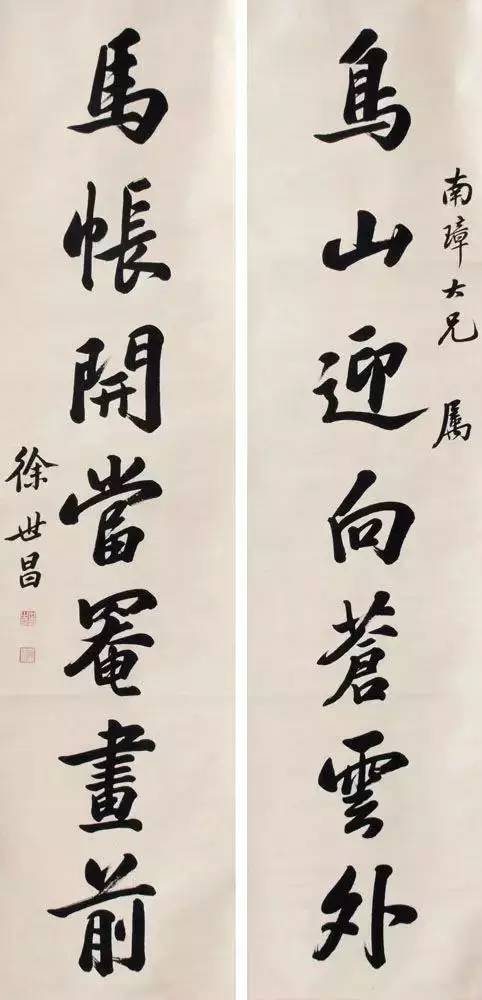 南璋大兄 属
山迎向蒼雲外
馬帳開當罨畫前
徐世昌